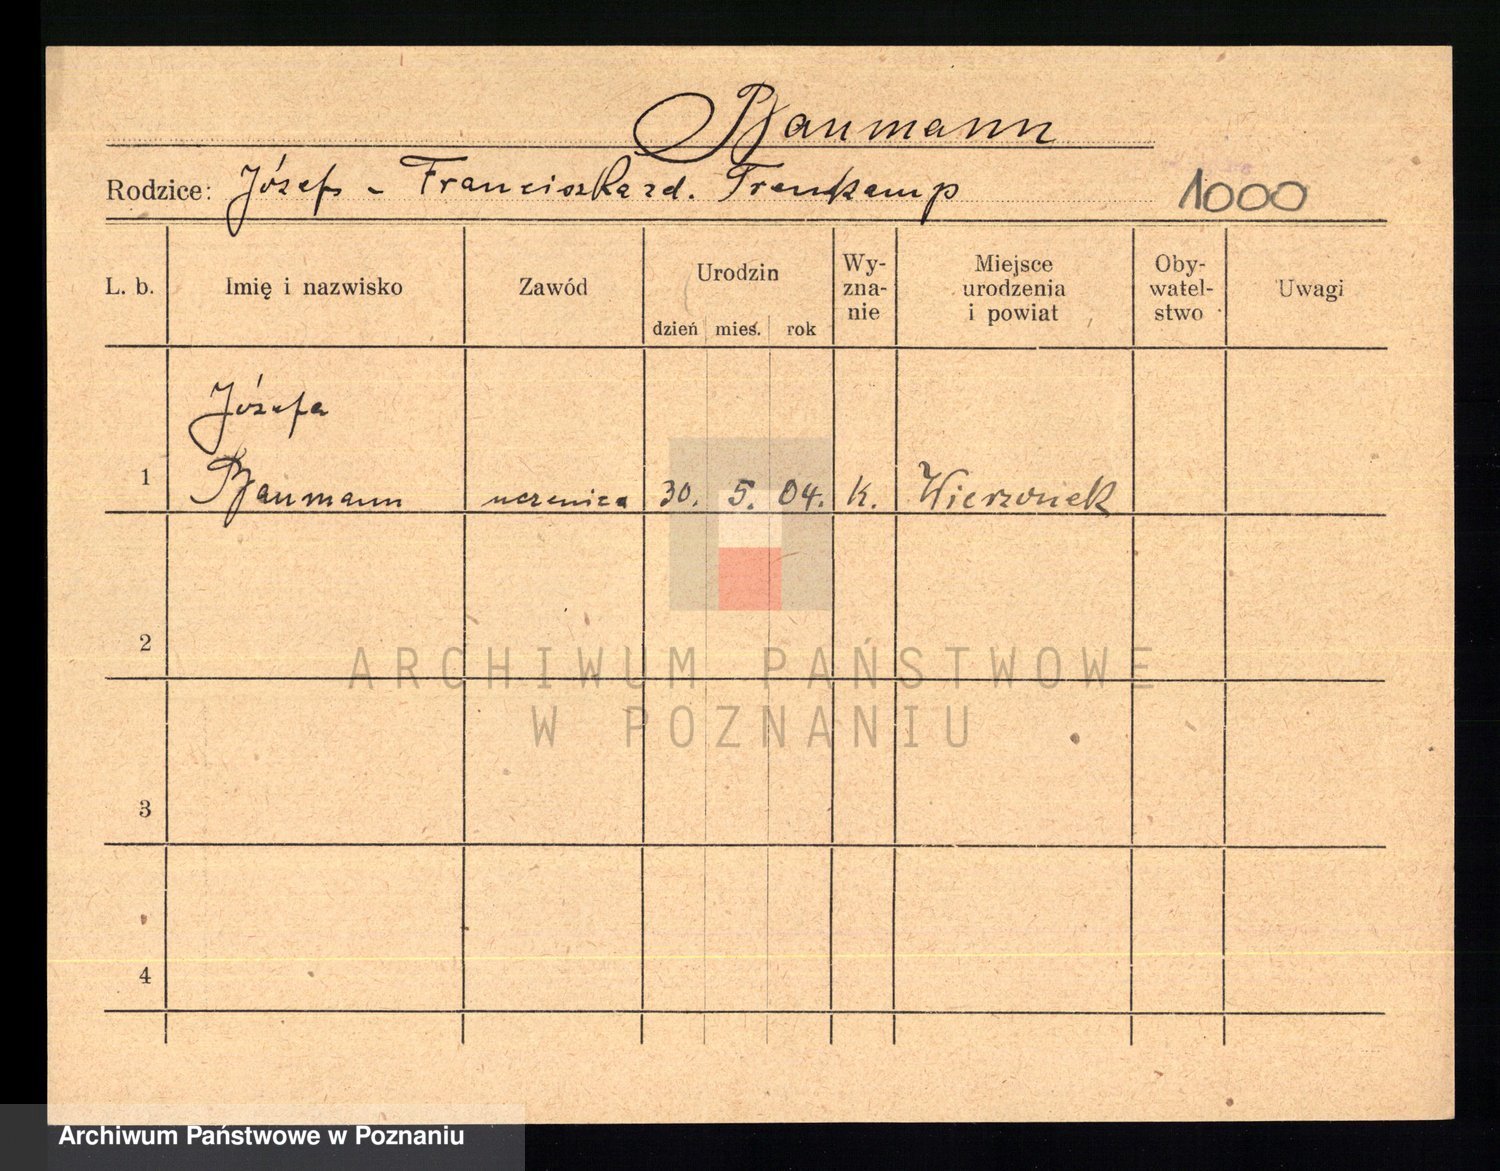 Baumann
Rodzice: Józef - Franciszka zd. Trenkamp
1000
L. b. Imię i nazwisko Zawód Urodzin dzień mieś. rok Wy-zna-nie Miejsce urodzenia i powiat Oby-watel-stwo Uwagi
Józefa
1 Baumann uczenica 30. 5. 04. k. Wierzonek
2
ARCHIWUM PAŃSTWOWE
W POZNANIU
3
4
Archiwum Państwowe w Poznaniu